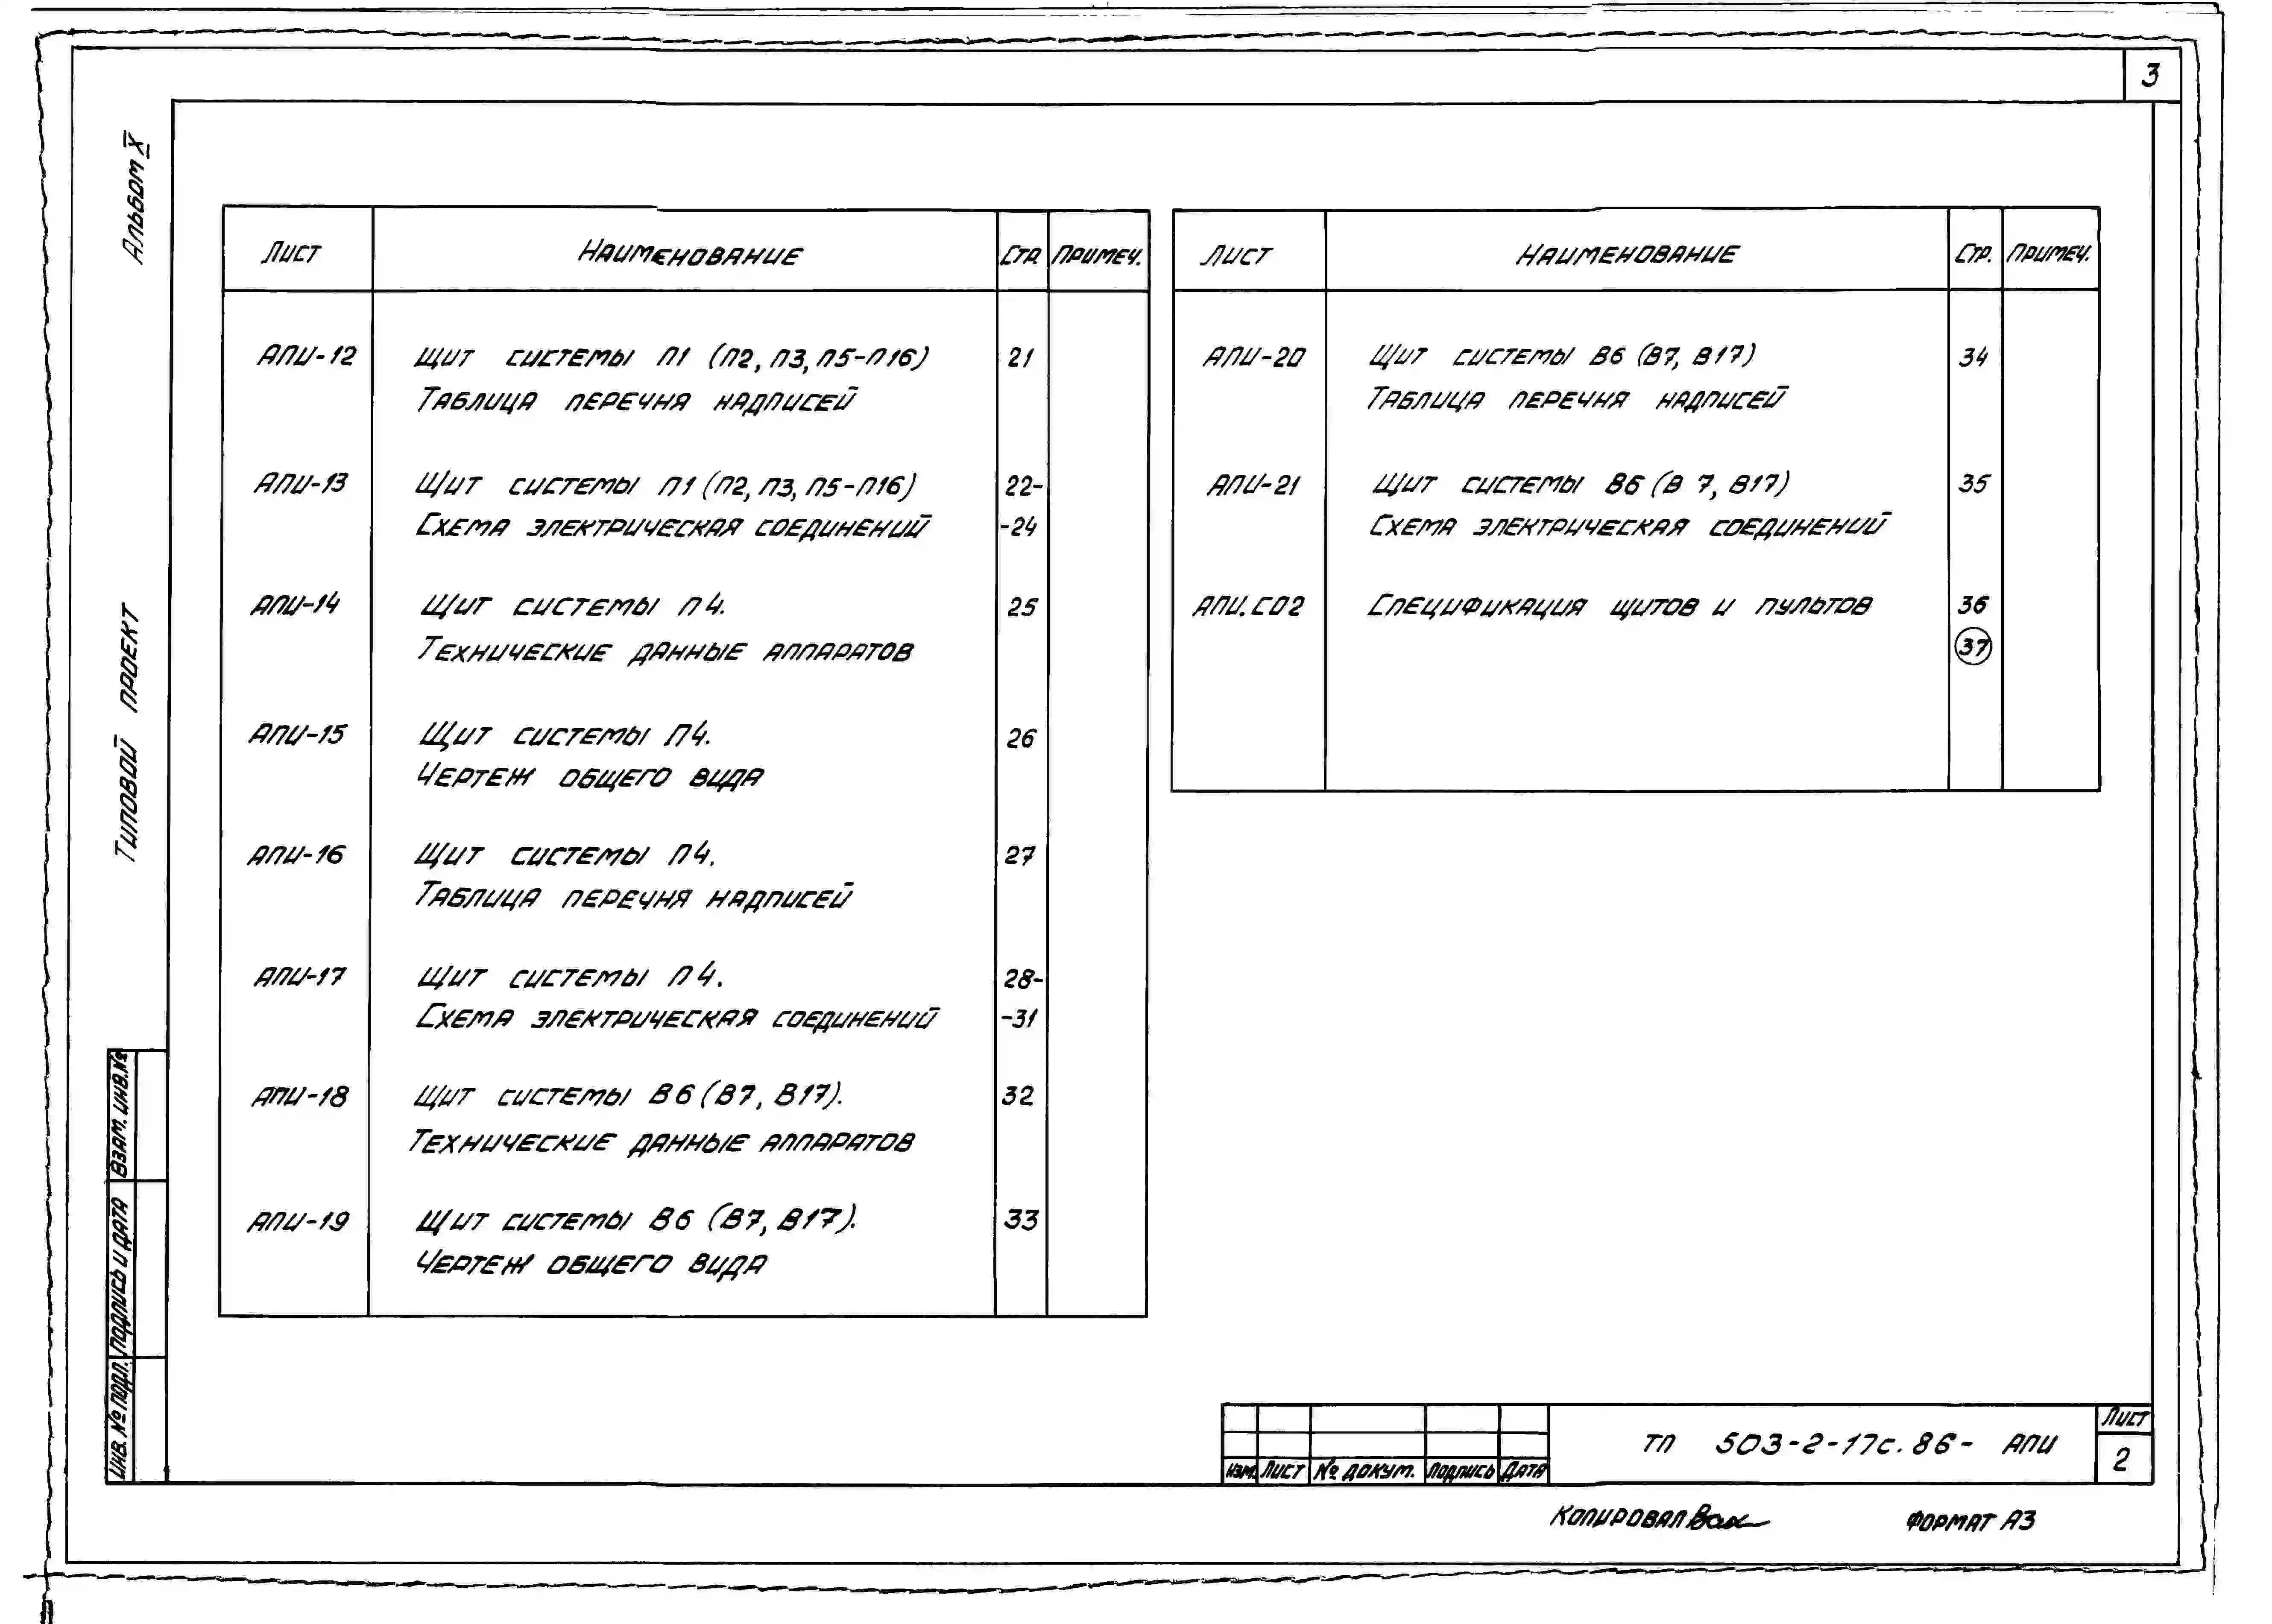 3
Альбом X
Типовой проект
Лист Наименование Стр. Примеч.
АПИ-12 Щит системы П1 (П2, П3, П5-П16) 21
Таблица перечня надписей
АПИ-13 Щит системы П1 (П2, П3, П5-П16) 22-
Схема электрическая соединений -24
АПИ-14 Щит системы П4. 25
Технические данные аппаратов
АПИ-15 Щит системы П4. 26
Чертеж общего вида
АПИ-16 Щит системы П4. 27
Таблица перечня надписей
АПИ-17 Щит системы П4. 28-
Схема электрическая соединений -31
АПИ-18 Щит системы В6 (В7, В17). 32
Технические данные аппаратов
АПИ-19 Щит системы В6 (В7, В17). 33
Чертеж общего вида
Лист Наименование Стр. Примеч.
АПИ-20 Щит системы В6 (В7, В17) 34
Таблица перечня надписей
АПИ-21 Щит системы В6 (В 7, В17) 35
Схема электрическая соединений
АПИ.СО2 Спецификация щитов и пультов 36
37
Взам. инв.№
Подпись и дата
Инв. № подл.
Изм. Лист № докум. Подпись Дата
ТП 503-2-17с.86- АПИ
Лист
2
Копировал
Формат А3